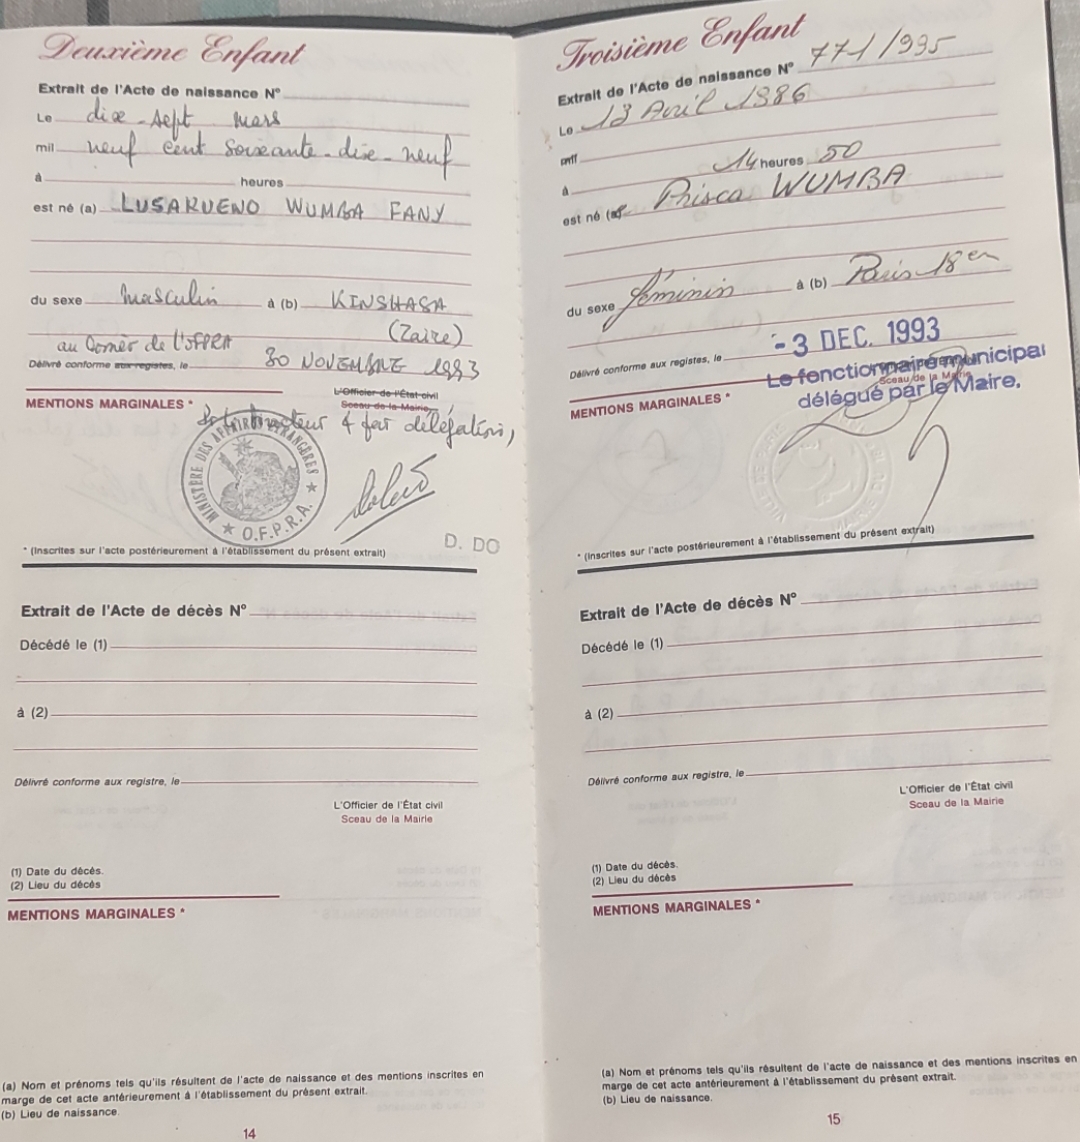 Deuxième Enfant
Extrait de l'Acte de naissance N°
Le dix-sept mars
mil neuf cent soixante-dix-neuf
à heures
est né (a) LUSAKUENO WUMBA FANY
du sexe masculin à (b) KINSHASA
(Zaire)
au Dossier de l'OFPRA
Délivré conforme aux registes, le 30 NOVEMBRE 1993
L'Officier de l'État civil
Sceau de la Mairie
MENTIONS MARGINALES *
par délégation,
MINISTÈRE DES AFFAIRES ÉTRANGÈRES
★ O.F.P.R.A. ★
D. DO
* (Inscrites sur l'acte postérieurement à l'établissement du présent extrait)
Extrait de l'Acte de décès N°
Décédé le (1)
à (2)
Délivré conforme aux registre, le
L'Officier de l'État civil
Sceau de la Mairie
(1) Date du décès.
(2) Lieu du décès
MENTIONS MARGINALES *
(a) Nom et prénoms tels qu'ils résultent de l'acte de naissance et des mentions inscrites en
marge de cet acte antérieurement à l'établissement du présent extrait.
(b) Lieu de naissance.
14
Troisième Enfant
Extrait de l'Acte de naissance N° 771/995
Le 13 Avril 1986
mil
à 14 heures 50
est né (a) Prisca WUMBA
du sexe féminin à (b) Paris 18em
Délivré conforme aux registes, le - 3 DEC. 1993
Le fonctionnaire municipal
Sceau de la Mairie
délégué par le Maire.
MENTIONS MARGINALES *
* (Inscrites sur l'acte postérieurement à l'établissement du présent extrait)
Extrait de l'Acte de décès N°
Décédé le (1)
à (2)
Délivré conforme aux registre, le
L'Officier de l'État civil
Sceau de la Mairie
(1) Date du décès.
(2) Lieu du décès
MENTIONS MARGINALES *
(a) Nom et prénoms tels qu'ils résultent de l'acte de naissance et des mentions inscrites en
marge de cet acte antérieurement à l'établissement du présent extrait.
(b) Lieu de naissance.
15